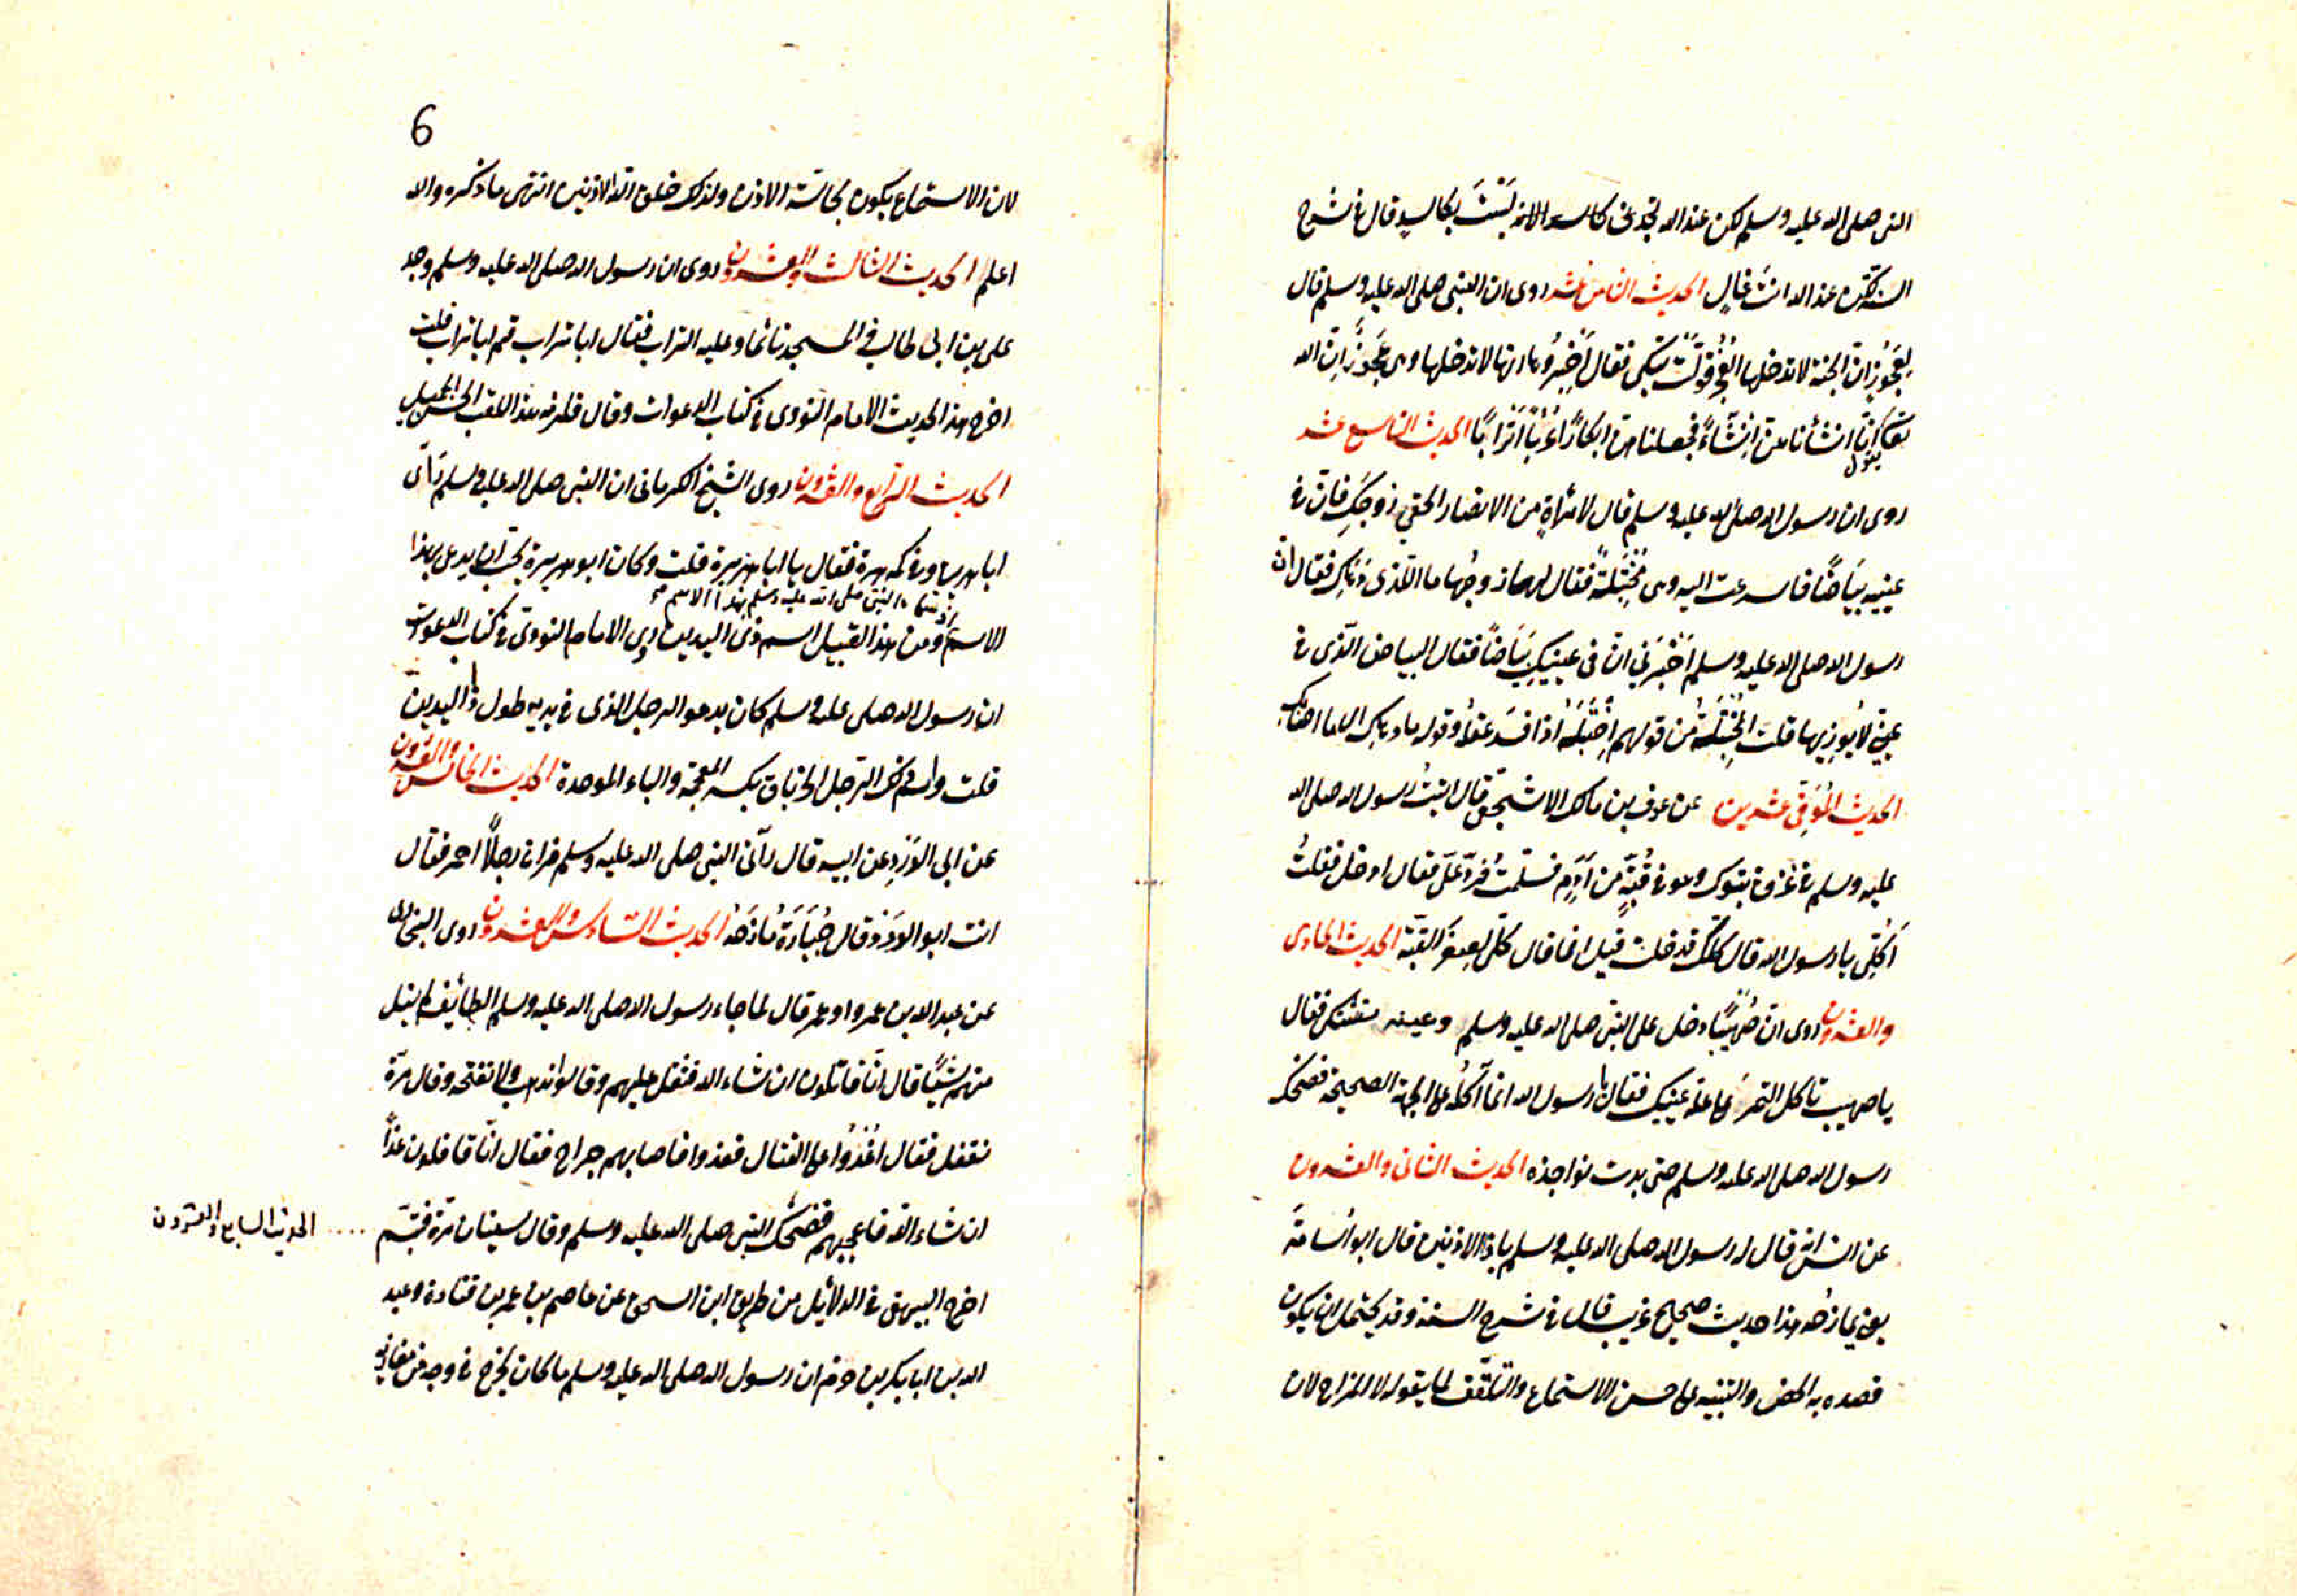 النبى صلى الله عليه وسلم لكن عند الله لم تجدنى كاسد الانه لست بكاسد قال فى شرح
السنة لكن عند الله انت غال الحديث الثامن عشر روى ان النبى صلى الله عليه وسلم قال
لعجوز ان الجنة لا تدخلها العجز فولت تبكى فقال اخبروها انها لا تدخلها وهى عجوز ان الله
تعالى يقول انا انشأناهن انشاء فجعلناهن ابكارا عربا اترابا الحديث التاسع عشر
روى ان رسول الله صلى الله عليه وسلم قال لامرأة من الانصار الحقى زوجك فان فى
عينيه بياضا فاسرعت اليه وهى مختبلة فقال لها زوجها ما الذى دهاك فقال ان
رسول الله صلى الله عليه وسلم اخبرنى ان فى عينيك بياضا فقال البياض الذى فى
عينى لا يوذيها قلت المختبلة من قولهم اختبله اذا افسد عقله وقوله
الحديث الموفى عشرين عن عوف بن مالك الاشجعى قال اتيت رسول الله صلى الله
عليه وسلم فى غزوة تبوك وهو فى قبة من ادم فسلمت فرد على فقال ادخل فقلت
اكلى يا رسول الله قال كلك قد خلت قيل انما قال كلى لصغر القبة الحديث الحادى
والعشرون روى ان صهيبا دخل على النبى صلى الله عليه وسلم وعينه تشتكى فقال
يا صهيب تاكل التمر على علة عينيك فقال يا رسول الله انما آكله على الجهة الصحيحة فضحك
رسول الله صلى الله عليه وسلم حتى بدت نواجذه الحديث الثانى والعشرون
عن انس انه قال له رسول الله صلى الله عليه وسلم يا ذا الاذنين قال ابو اسامة
يعنى يمازحه هذا حديث صحيح غريب قال فى شرح السنة وقد يحتمل ان يكون
قصده به الحض والتنبيه على حسن الاستماع والتلقف لما يقوله لا المزاح لان
6
لان الاستماع يكون بحاسة الاذن ولذلك خلق الله الاذنين انتهى ما ذكره والله
اعلم الحديث الثالث والعشرون روى ان رسول الله صلى الله عليه وسلم وجد
على بن ابى طالب فى المسجد نائما وعليه التراب فقال ابا تراب قم ابا تراب قلت
اخرج هذا الحديث الامام النووى فى كتاب الدعوات وقال فلزمه هذا اللقب الحسن الجميل
الحديث الرابع والعشرون روى الشيخ الكرمانى ان النبى صلى الله عليه وسلم رآى
ابا هريرة وفى كمه هرة فقال يا ابا هريرة قلت وكان ابو هريرة يحب ان يدعى بهذا
الاسم اذ سماه النبى صلى الله عليه وسلم بهذا الاسم صح ومن هذا القبيل اسم ذى اليدين روى الامام النووى فى كتاب الدعوات
ان رسول الله صلى عليه وسلم كان يدعو الرجل الذى فى يديه طول ذا اليدين
قلت واسم ذلك الرجل الخرباق بكسر المعجمة والباء الموحدة الحديث الخامس والعشرون
عن ابى الورد عن ابيه قال رآنى النبى صلى الله عليه وسلم فرآنى رجلا احمر فقال
انت ابو الورد وقال جبارة مازحه الحديث السادس والعشرون روى البخارى
عن عبد الله بن عمرو او عمر قال لما جاء رسول الله صلى الله عليه وسلم الطائف لم ينل
منهم شيئا قال انا قافلون ان شاء الله فثقل عليهم وقالوا نذهب ولا نفتحه وقال مرة
نقفل فقال اغدوا على القتال فغدوا فاصابهم جراح فقال انا قافلون غدا
ان شاء الله فاعجبهم فضحك النبى صلى الله عليه وسلم وقال سفيان مرة فتبسم .... الحديث السابع والعشرون
اخرج البيهقى فى الدلائل من طريق ابن اسحق عن عاصم بن عمر بن قتادة وعبد
الله بن ابا بكر بن حزم ان رسول الله صلى الله عليه وسلم ما كان يخرج فى وجه من مغازيه